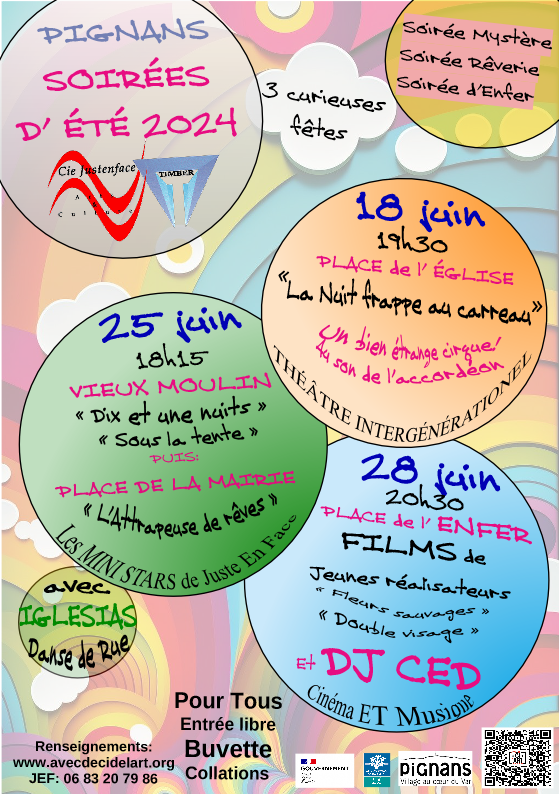 PIGNANS
SOIRÉES
D' ÉTÉ 2024
Cie Justenface
Art
Culture
TIMBER
3 curieuses
fêtes
Soirée Mystère
Soirée Rêverie
Soirée d'Enfer
18 juin
19h30
PLACE de l' ÉGLISE
«La Nuit frappe au carreau»
Un bien étrange cirque!
Au son de l'accordéon
THÉÂTRE INTERGÉNÉRATIONEL
25 juin
18h15
VIEUX MOULIN
« Dix et une nuits »
« Sous la tente »
PUIS:
PLACE DE LA MAIRIE
« L'Attrapeuse de rêves »
Les MINI STARS de Juste En Face
28 juin
20h30
PLACE de l' ENFER
FILMS de
Jeunes réalisateurs
« Fleurs sauvages »
« Double visage »
ET DJ CED
Cinéma ET Musique
avec
IGLESIAS
Danse de Rue
Pour Tous
Entrée libre
Buvette
Collations
Renseignements:
www.avecdecidelart.org
JEF: 06 83 20 79 86
GOUVERNEMENT
pignans
Village au cœur du Var